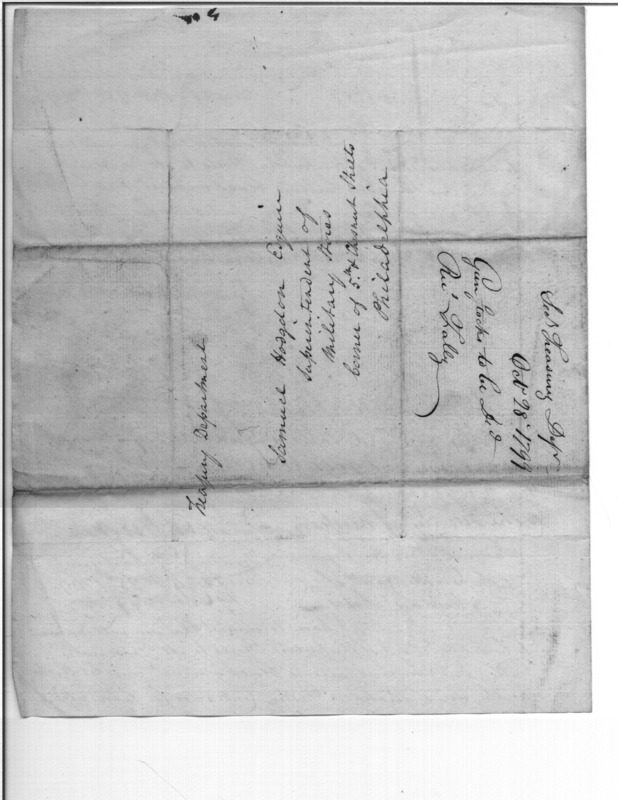 Treasury Department
Samuel Hodgdon Esquire
Superintendent of
Military Stores
Corner of 5th & Chesnut Streets
Philadelphia
Treasury Dept
Oct 28 1799
Gun Locks to be